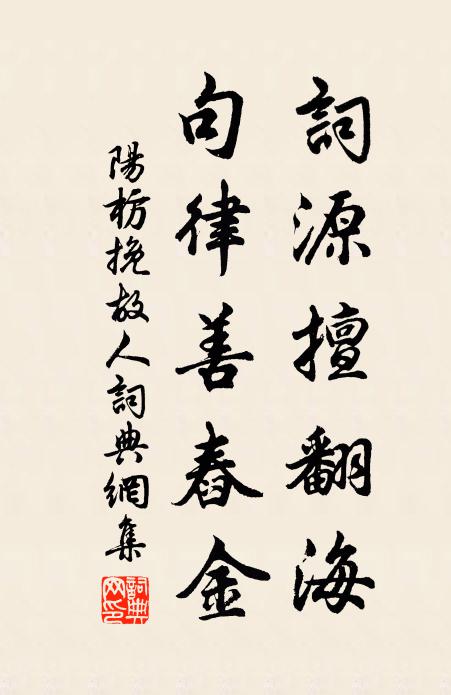 詞源擅翻海
句律善舂金
陽枋挽故人詞典網集
詞典网印